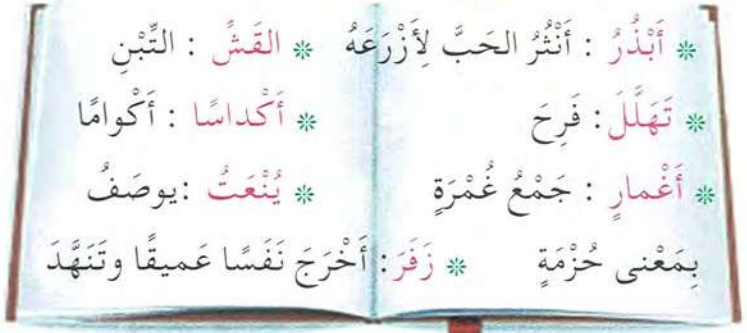 * أَبْذُرُ : أَنْثُرُ الحَبَّ لِأَزْرَعَهُ * القَشَّ : التِّبْنِ
* تَهَلَّلَ : فَرِحَ * أَكْداسًا : أَكْوامًا
* أَغْمارٍ : جَمْعُ غُمْرَةٍ * يُنْعَتُ : يوصَفُ
بِمَعْنى حُزْمَةٍ * زَفَرَ : أَخْرَجَ نَفَسًا عَميقًا وتَنَهَّدَ